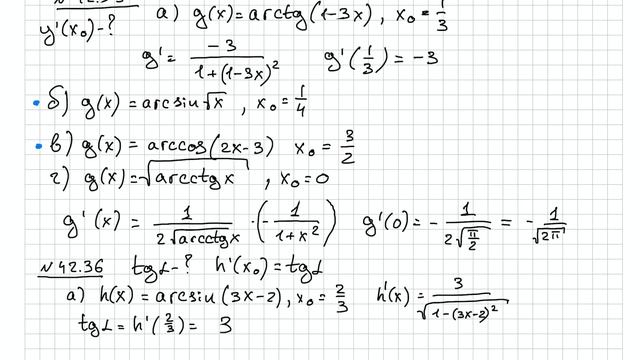 y'(x₀)-? а) g(x)=arctg(1-3x), x₀=1/3
g'= -3/(1+(1-3x)²) g'(1/3)=-3
• б) g(x)=arcsin√x, x₀=1/4
• в) g(x)=arccos(2x-3) x₀=3/2
г) g(x)=√(arcctgx), x₀=0
g'(x)= 1/(2√(arcctgx)) · (-1/(1+x²)) g'(0)= -1/(2√(π/2)) = -1/√(2π)
№42.36 tgα-? h'(x₀)=tgα
а) h(x)=arcsin(3x-2), x₀=2/3 h'(x)= 3/√(1-(3x-2)²)
tgα=h'(2/3)= 3